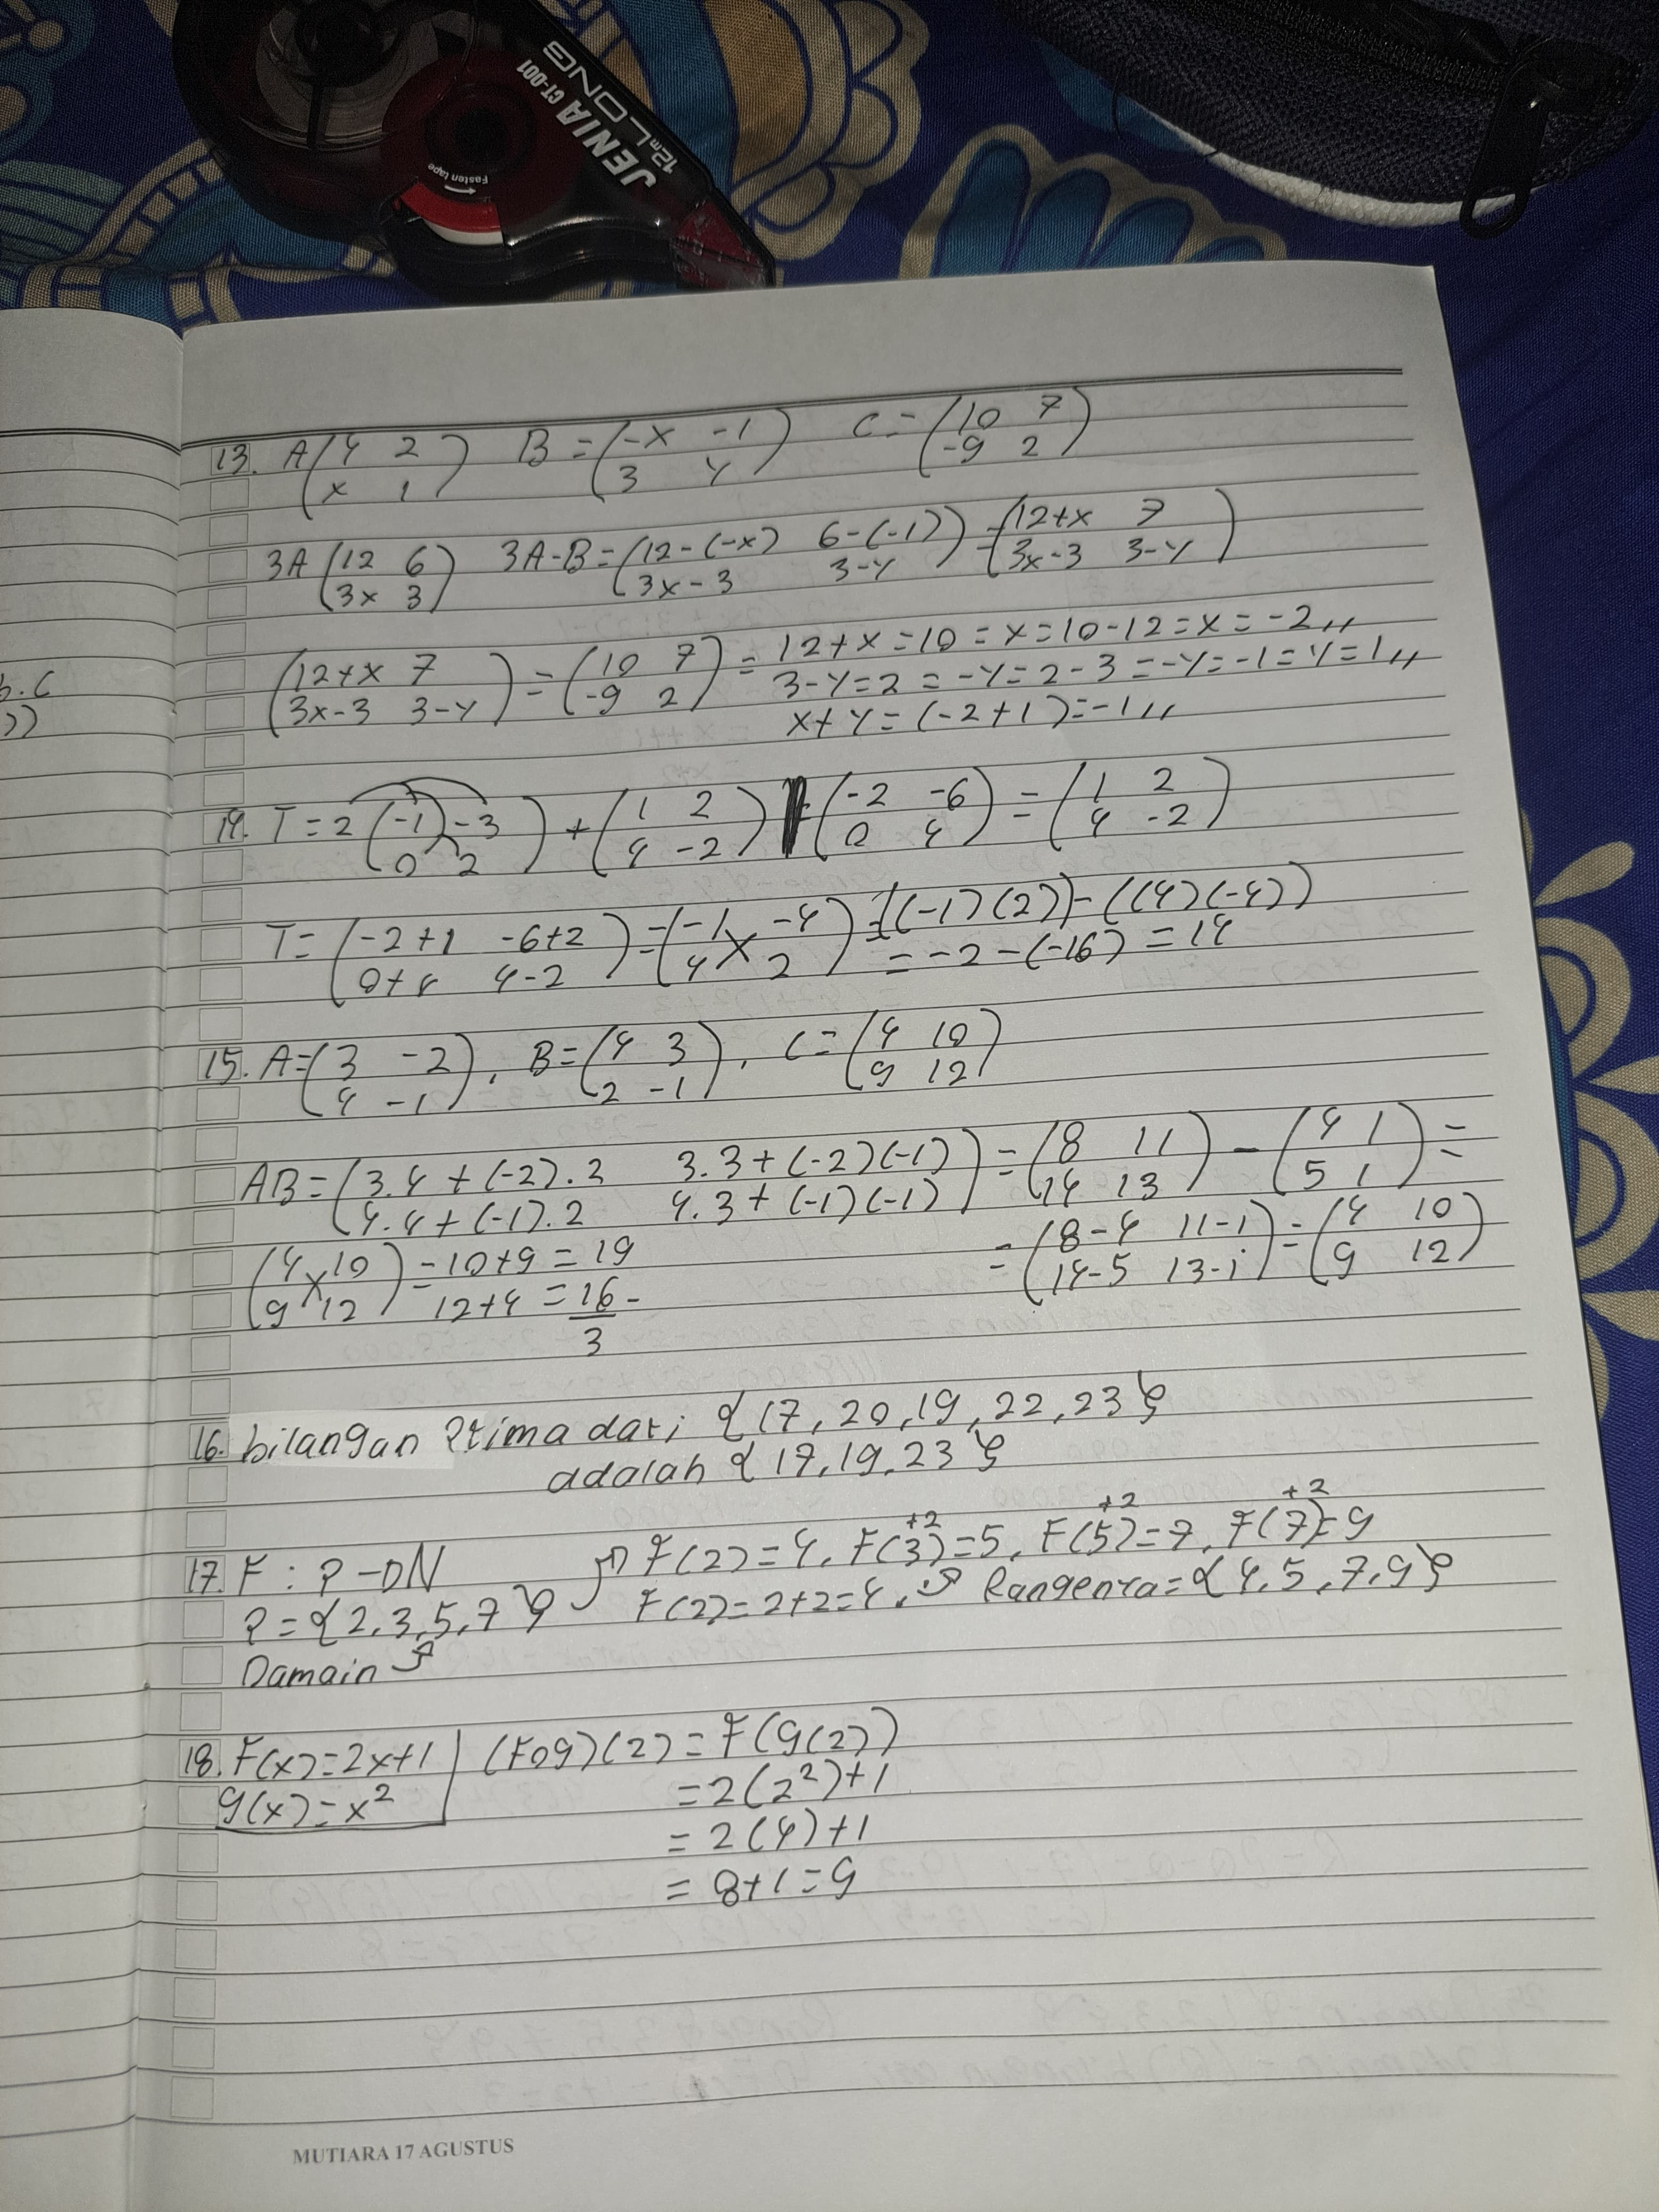 JENIA CT-001
12m LONG
Fasten tape
b.c
))
13. A (4 2 / x 1) B = (-x -1 / 3 y) C = (10 7 / -9 2)
3A (12 6 / 3x 3) 3A-B = (12-(-x) 6-(-1) / 3x-3 3-y) = (12+x 7 / 3x-3 3-y)
(12+x 7 / 3x-3 3-y) = (10 7 / -9 2) = 12+x=10 = x=10-12 = x=-2,,
3-y=2 = -y=2-3 = -y=-1 = y=1,,
x+y = (-2+1) = -1,,
14. T = 2 (-1 -3 / 0 2) + (1 2 / 4 -2) (-2 -6 / 0 4) = (1 2 / 4 -2)
T = (-2+1 -6+2 / 0+4 4-2) = (-1 -4 / 4 2) = ((-1)(2)) - ((4)(-4))
= -2-(-16) = 14
15. A = (3 -2 / 4 -1), B = (4 3 / 2 -1), C = (4 10 / 9 12)
AB = (3.4+(-2).2 3.3+(-2)(-1) / 4.4+(-1).2 4.3+(-1)(-1)) = (8 11 / 14 13) - (4 1 / 5 1) =
= (8-4 11-1 / 14-5 13-1) = (4 10 / 9 12)
(4 10 / 9 12) = 10+9 = 19
12+4 = 16 -
3
16. bilangan Prima dari {17, 20, 19, 22, 23}
adalah {17, 19, 23}
17. F : P → N F(2)=4, F(3)=5, F(5)=7, F(7)=9
+2 +2 +2
P = {2, 3, 5, 7} F(2)=2+2=4. Rangenya = {4, 5, 7, 9}
Damain
18. F(x) = 2x+1 (Fog)(2) = F(g(2))
g(x) = x² = 2(2²)+1
= 2(4)+1
= 8+1 = 9
MUTIARA 17 AGUSTUS